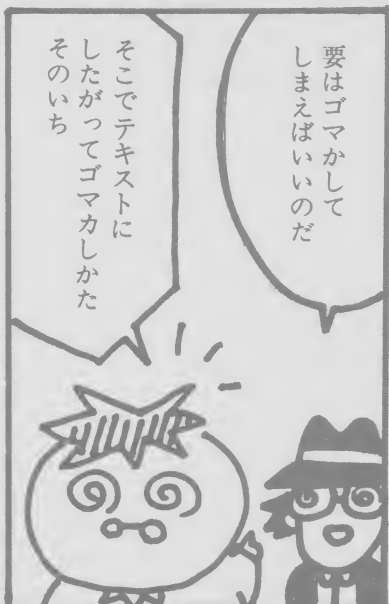 要はゴマかして
しまえばいいのだ
そこでテキストに
したがってゴマカしかた
そのいち